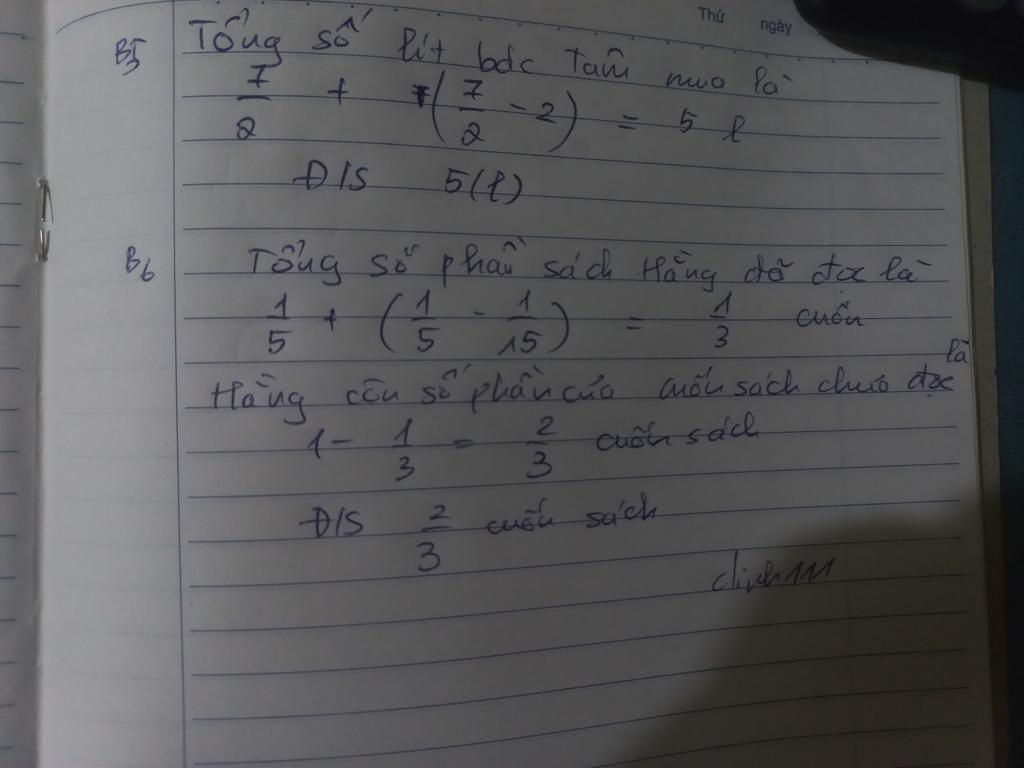 Thứ ngày
B5 Tổng số lít bác Tâm mua là
7/2 + (7/2 - 2) = 5 l
Đ/S 5(l)
B6 Tổng số phần sách Hằng đã đọc là
1/5 + (1/5 - 1/15) = 1/3 cuốn
Hằng còn số phần của cuốn sách chưa đọc là
1 - 1/3 = 2/3 cuốn sách
Đ/S 2/3 cuốn sách